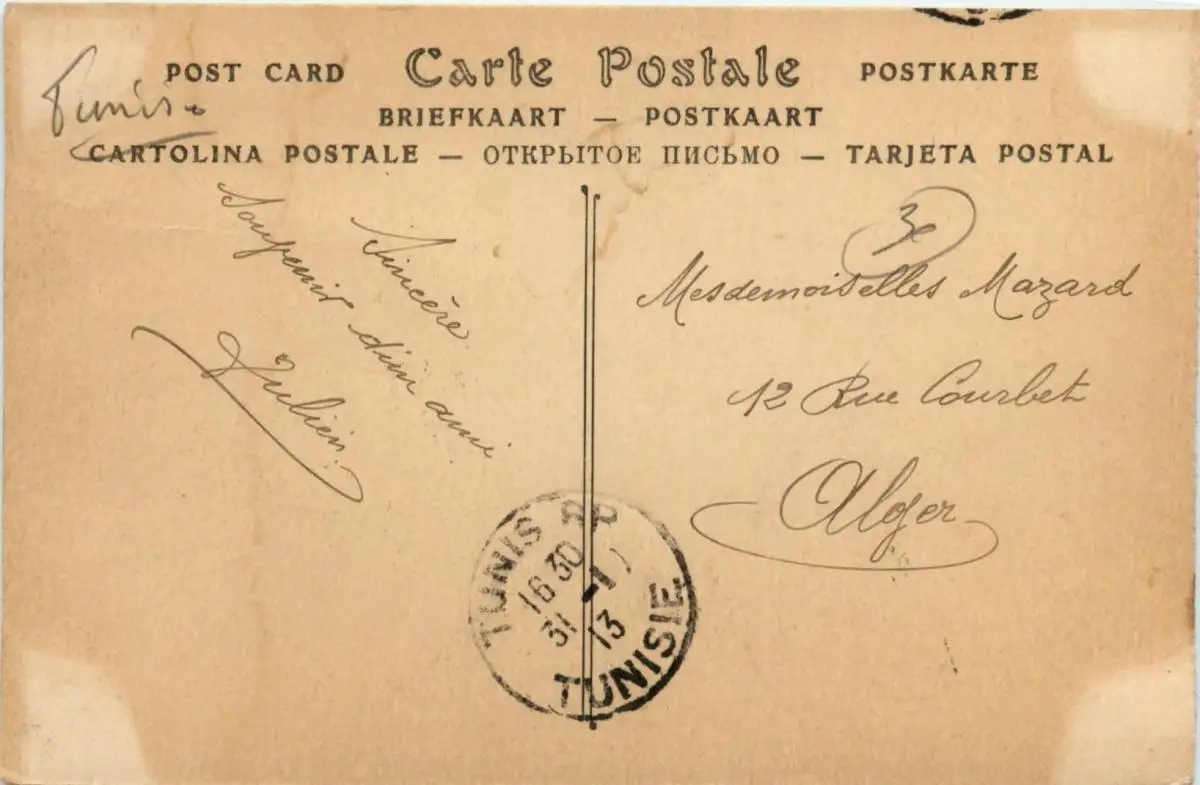 Tunisie
POST CARD Carte Postale POSTKARTE
BRIEFKAART — POSTKAART
CARTOLINA POSTALE — ОТКРЫТОЕ ПИСЬМО — TARJETA POSTAL
Sincère
Souvenir d'un ami
Julien
3e
Mesdemoiselles Mazard
12 Rue Courbet
Alger
TUNIS RP
16 30
31 -1 13
TUNISIE